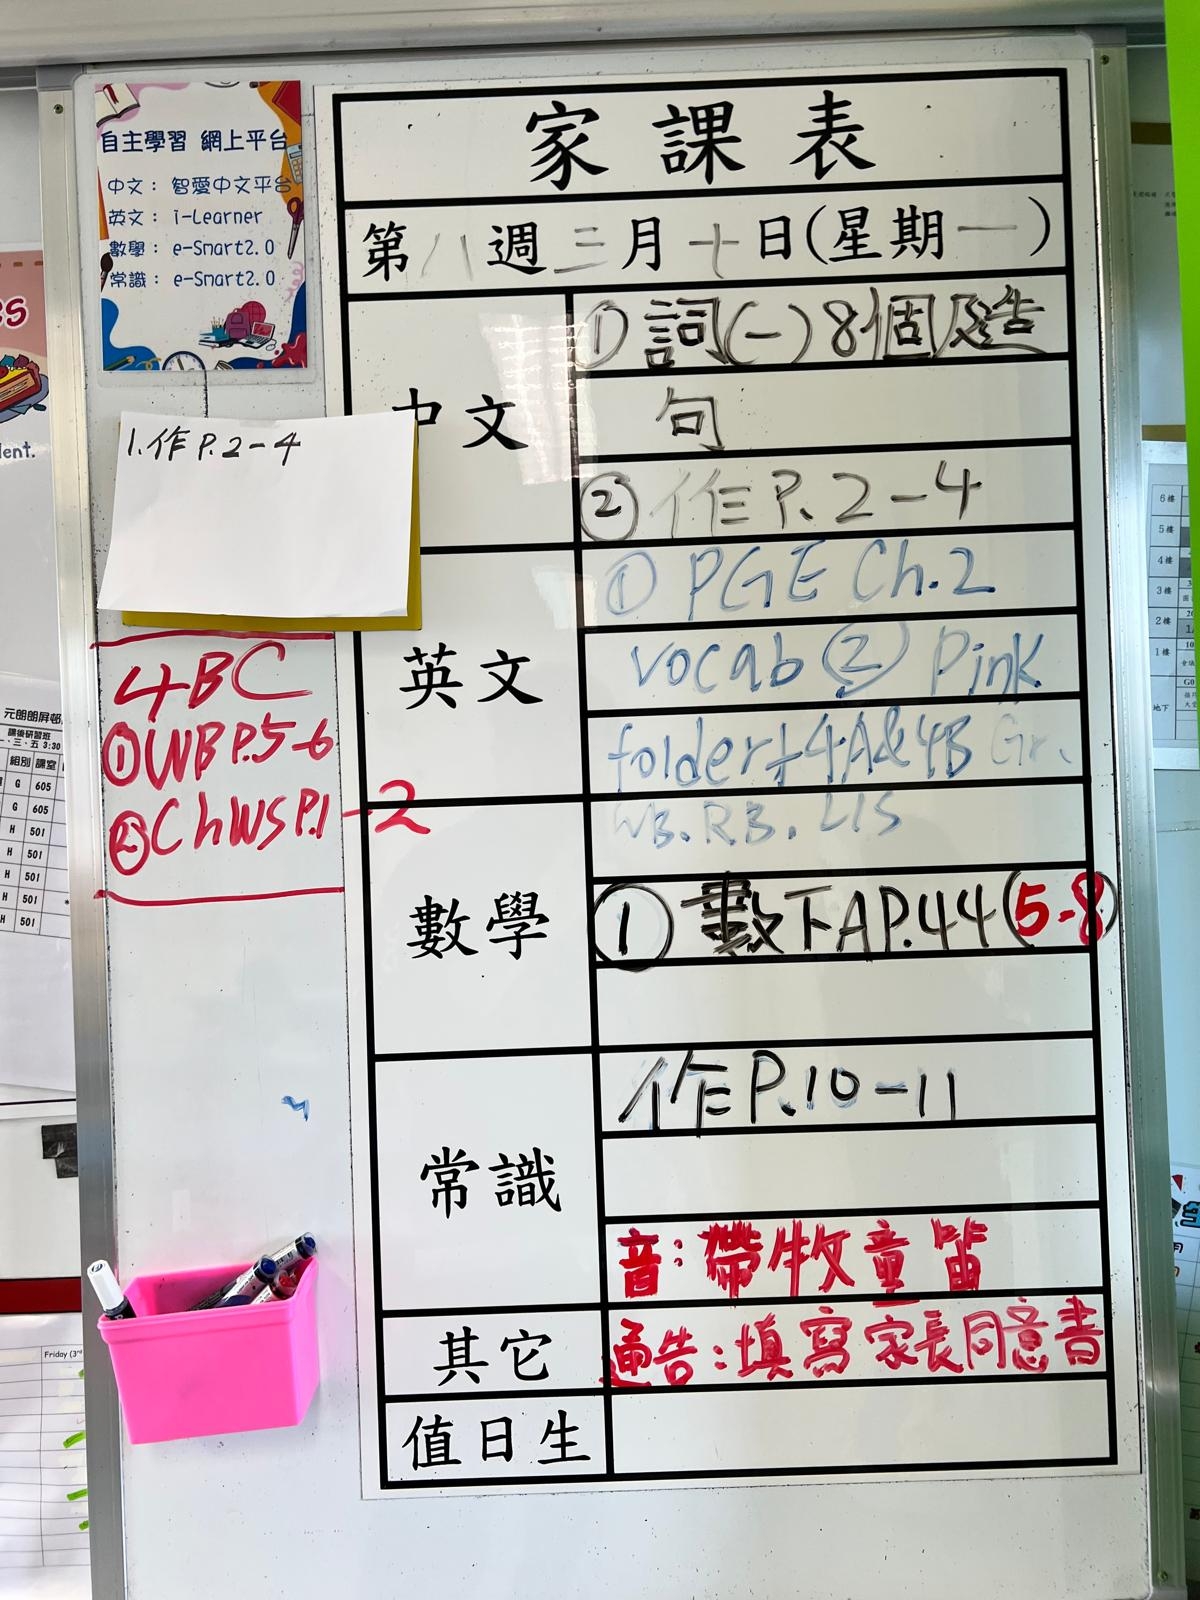 自主學習 網上平台
中文： 智愛中文平台
英文： i-Learner
數學： e-Smart2.0
常識： e-Smart2.0
1.作P.2-4
4BC
①WBP.5-6
②ChWSP.1-2
家課表
第八週三月十日(星期一)
中文
①詞(一)8個及造
句
②作P.2-4
英文
①PGE Ch.2
vocab ② Pink
folder+4A&4B Gr.
WB.RB.LIS
數學
①數下AP.44(5-8)
常識
作P.10-11
音：帶牧童笛
其它
通告：填寫家長同意書
值日生
lent.
元朗朗屏邨
課後研習班
一、三、五 3:30
組別 課室
G 605
G 605
H 501
H 501
H 501
H 501
H 501
Friday (3rd
6樓
5樓
4樓
3樓
2樓
1樓
地下